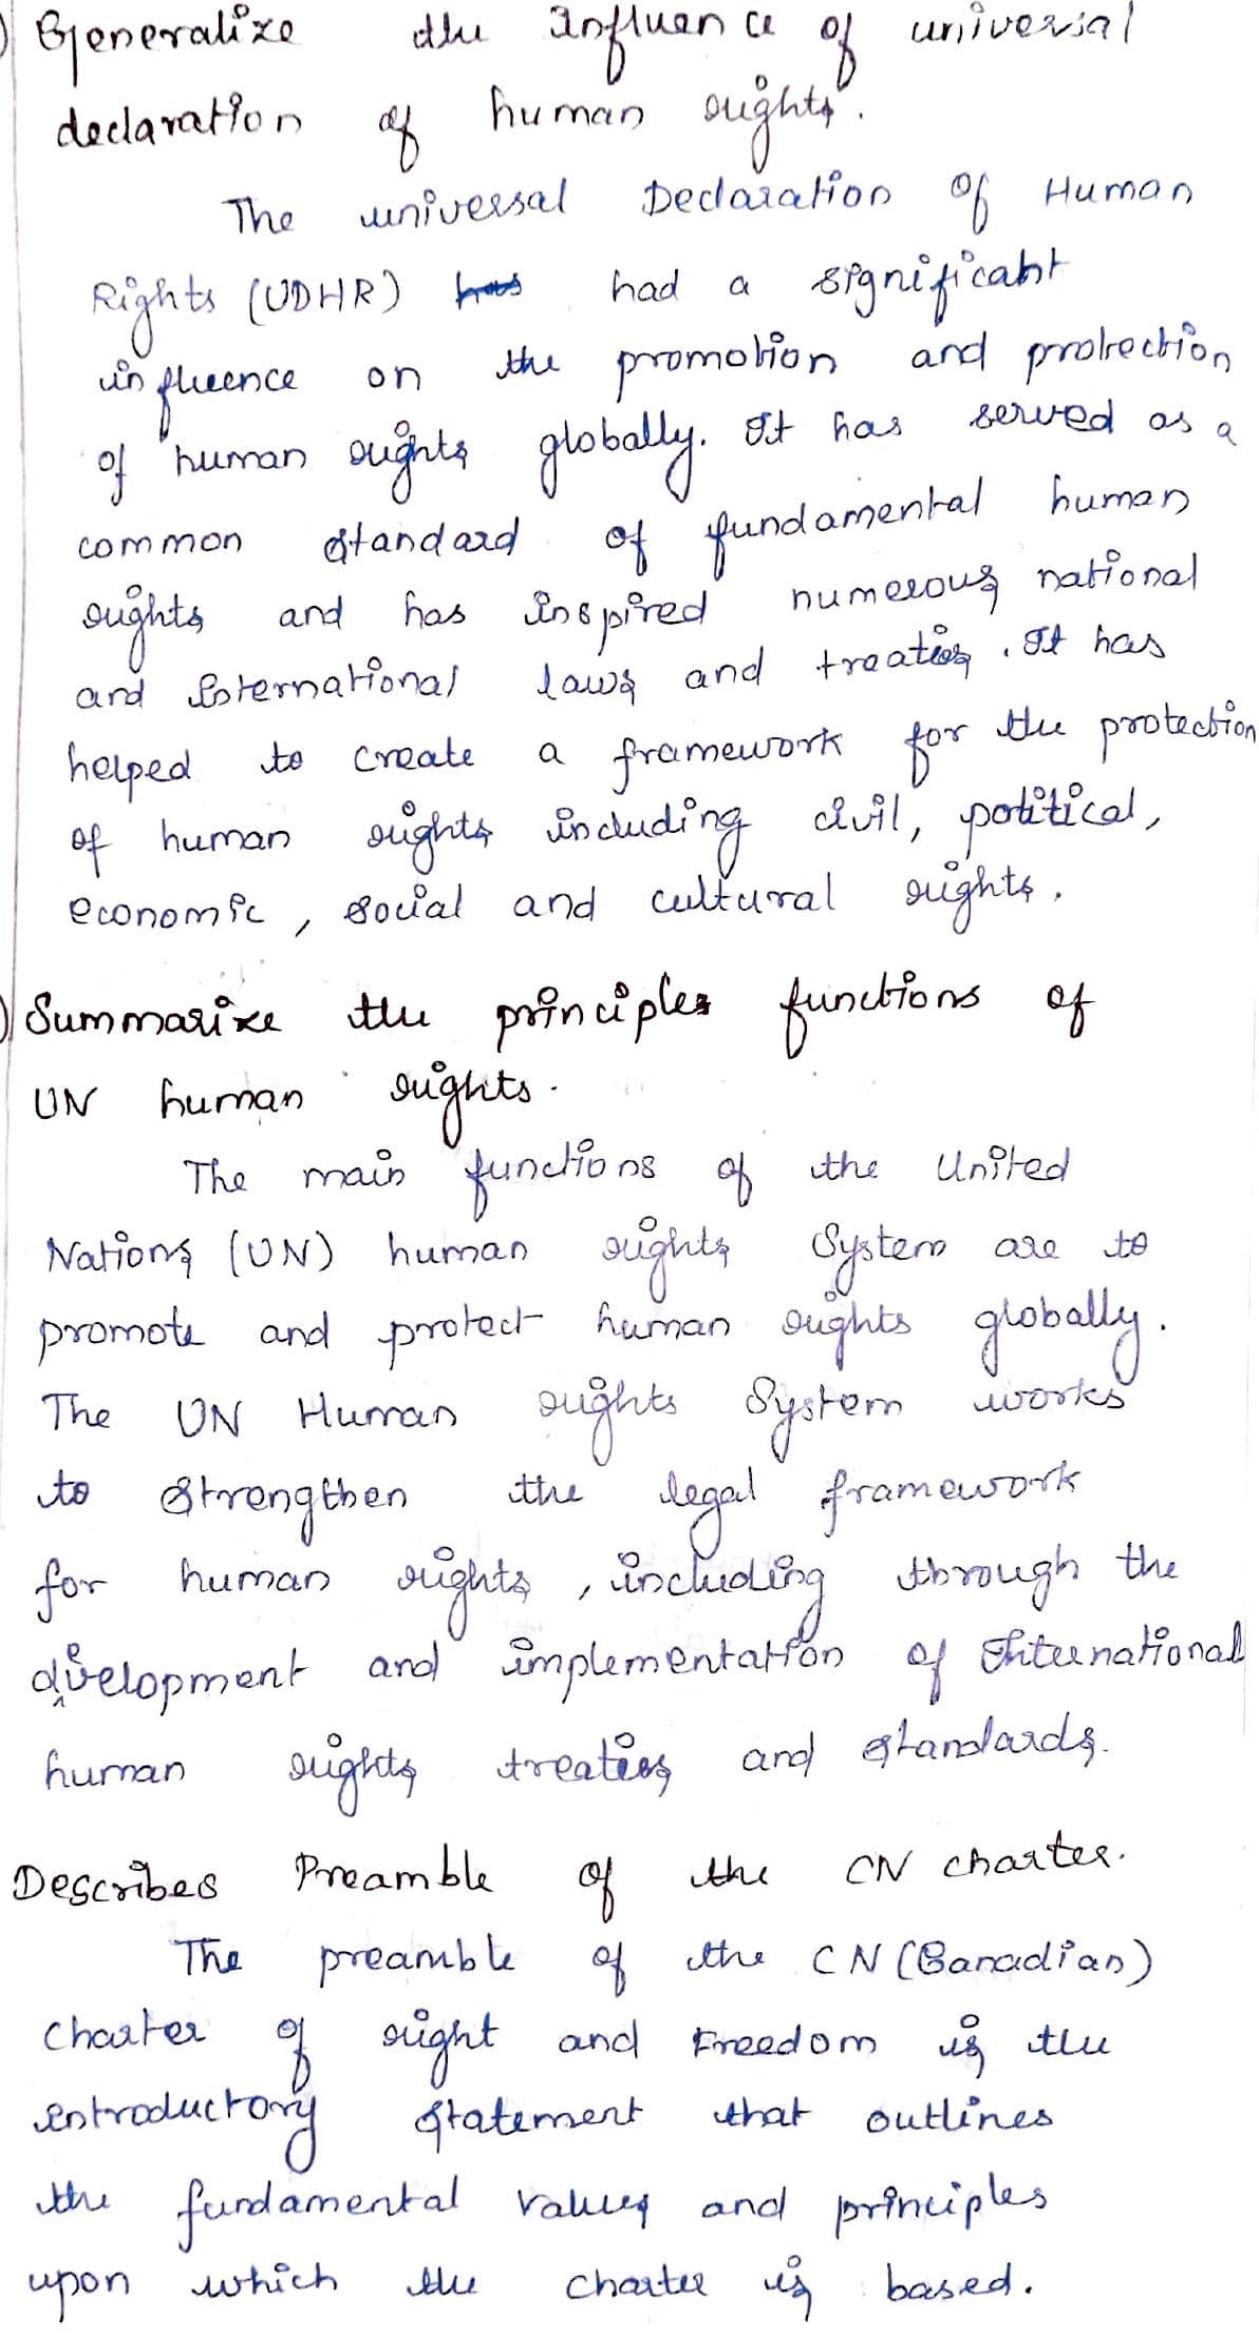 ) Generalize the Influence of universal
declaration of human rights.
The universal Declaration of Human
Rights (UDHR) has had a significant
influence on the promotion and protection
of human rights globally. It has served as a
common standard of fundamental human
rights and has inspired numerous national
and International laws and treaties. It has
helped to create a framework for the protection
of human rights including civil, political,
economic, social and cultural rights.
) Summarize the principles functions of
UN human rights.
The main functions of the United
Nations (UN) human rights System are to
promote and protect human rights globally.
The UN Human rights System works
to Strengthen the legal framework
for human rights, including through the
development and implementation of International
human rights treaties and standards.
Describes Preamble of the CN charter.
The preamble of the CN (Canadian)
Charter of right and Freedom is the
introductory statement that outlines
the fundamental values and principles
upon which the charter is based.